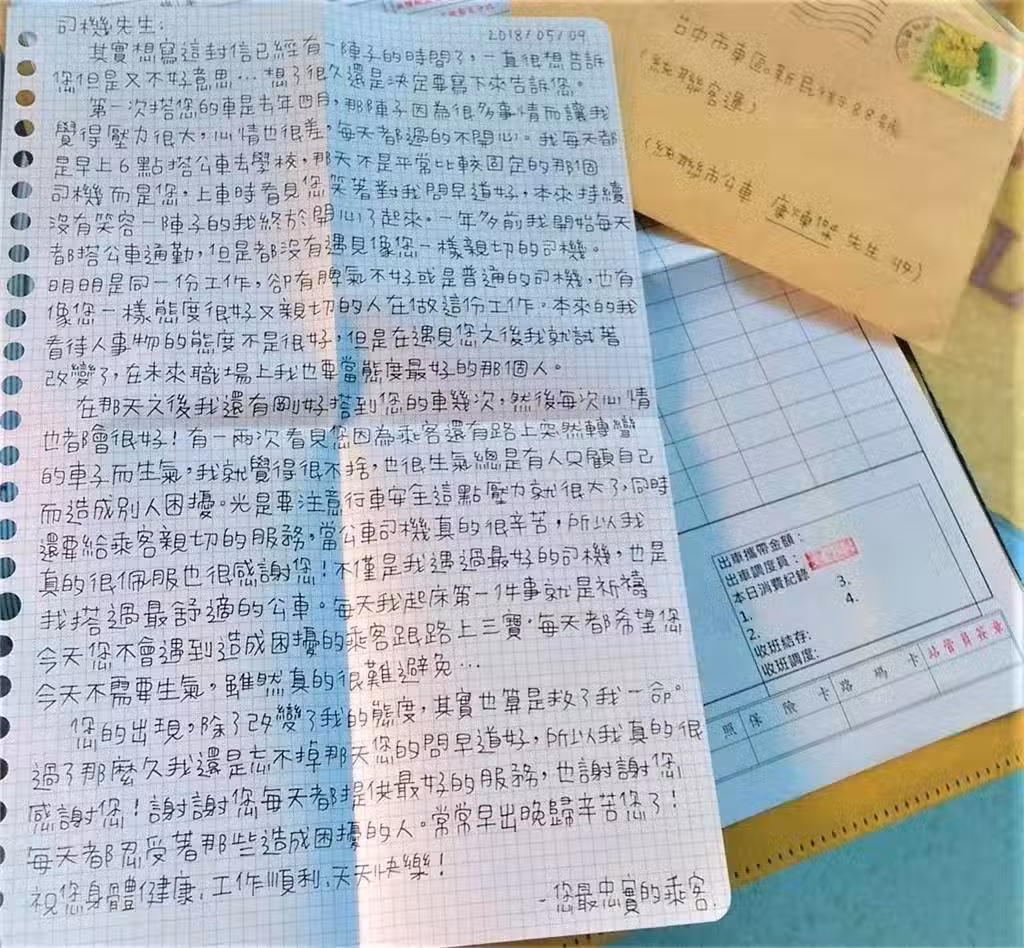 司機先生:
2018/05/09.
其實想寫這封信已經有一陣子的時間了,一直很想告訴
您但是又不好意思…想了很久還是決定要寫下來告訴您。
第一次搭您的車是去年四月,那陣子因為很多事情而讓我
覺得壓力很大,心情也很差,每天都過的不開心。我每天都
是早上6點搭公車去學校,那天不是平常比較固定的那個
司機而是您,上車時看見您笑著對我問早道好,本來持續
沒有笑容一陣子的我終於開心了起來。一年多前我開始每天
都搭公車通勤,但是都沒有遇見像您一樣親切的司機。
明明是同一份工作,卻有脾氣不好或是普通的司機,也有
像您一樣態度很好又親切的人在做這份工作。本來的我
看待人事物的態度不是很好,但是在遇見您之後我就試著
改變了,在未來職場上我也要當態度最好的那個人。
在那天之後我還有剛好搭到您的車幾次,然後每次心情
也都會很好!有一兩次看見您因為乘客還有路上突然轉彎
的車子而生氣,我就覺得很不捨,也很生氣總是有人只顧自己
而造成別人困擾。光是要注意行車安全這點壓力就很大了,同時
還要給乘客親切的服務,當公車司機真的很辛苦,所以我
真的很佩服也很感謝您!不僅是我遇過最好的司機,也是
我搭過最舒適的公車。每天我起床第一件事就是祈禱
今天您不會遇到造成困擾的乘客跟路上三寶,每天都希望您
今天不需要生氣,雖然真的很難避免…
您的出現,除了改變了我的態度,其實也算是救了我一命。
過了那麼久我還是忘不掉那天您的問早道好,所以我真的很
感謝您!謝謝您每天都提供最好的服務,也謝謝您
每天都忍受著那些造成困擾的人。常常早出晚歸辛苦您了!
祝您身體健康,工作順利,天天快樂!
-您最忠實的乘客.
台中市東區新民街88號
(統聯客運)
(統聯市公車 先生 收)
出車攜帶金額:
出車調度員:
本日消費紀錄
1.
3.
2.
4.
收班結存:
收班調度:
站管員簽章
照 保 險 卡 路 碼 卡